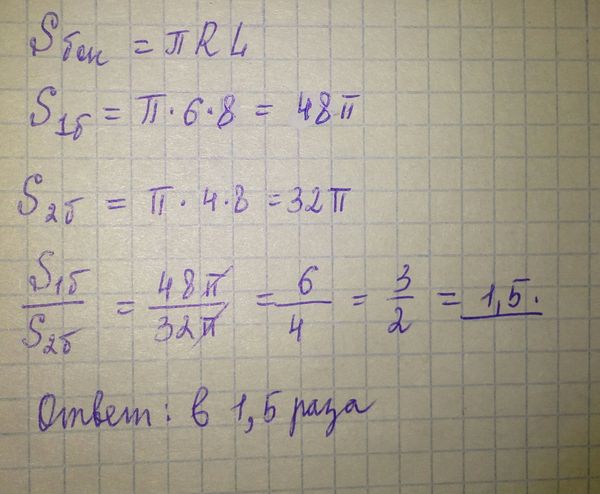 Sбок = πRL
S1б = π·6·8 = 48π
S2б = π·4·8 = 32π
S1б/S2б = 48π/32π = 6/4 = 3/2 = 1,5.
Ответ: в 1,5 раза